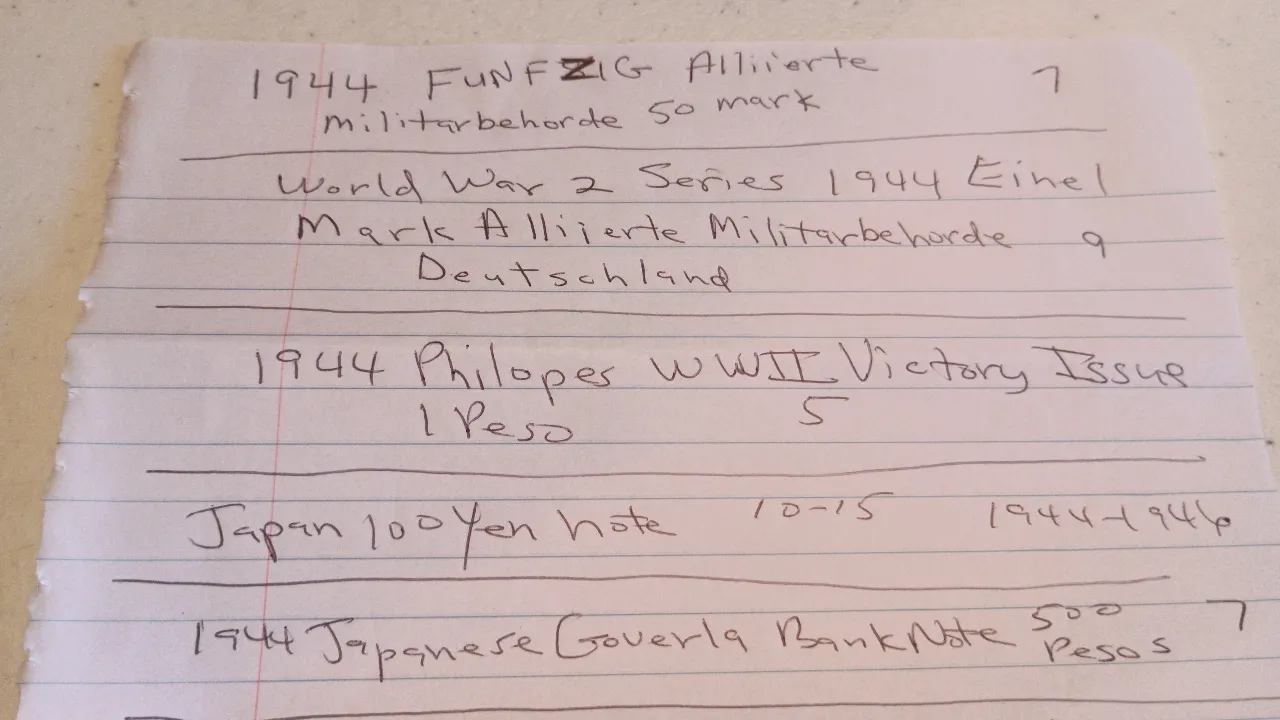 1944 FUNFZIG Alliierte 7
Militarbehorde 50 mark
World War 2 Series 1944 Einel
Mark Alliierte Militarbehorde 9
Deutschland
1944 Philopes WWII Victory Issue
1 Peso 5
Japan 100 Yen note 10-15 1944-1946
1944 Japanese Goverla BankNote 500 7
Pesos